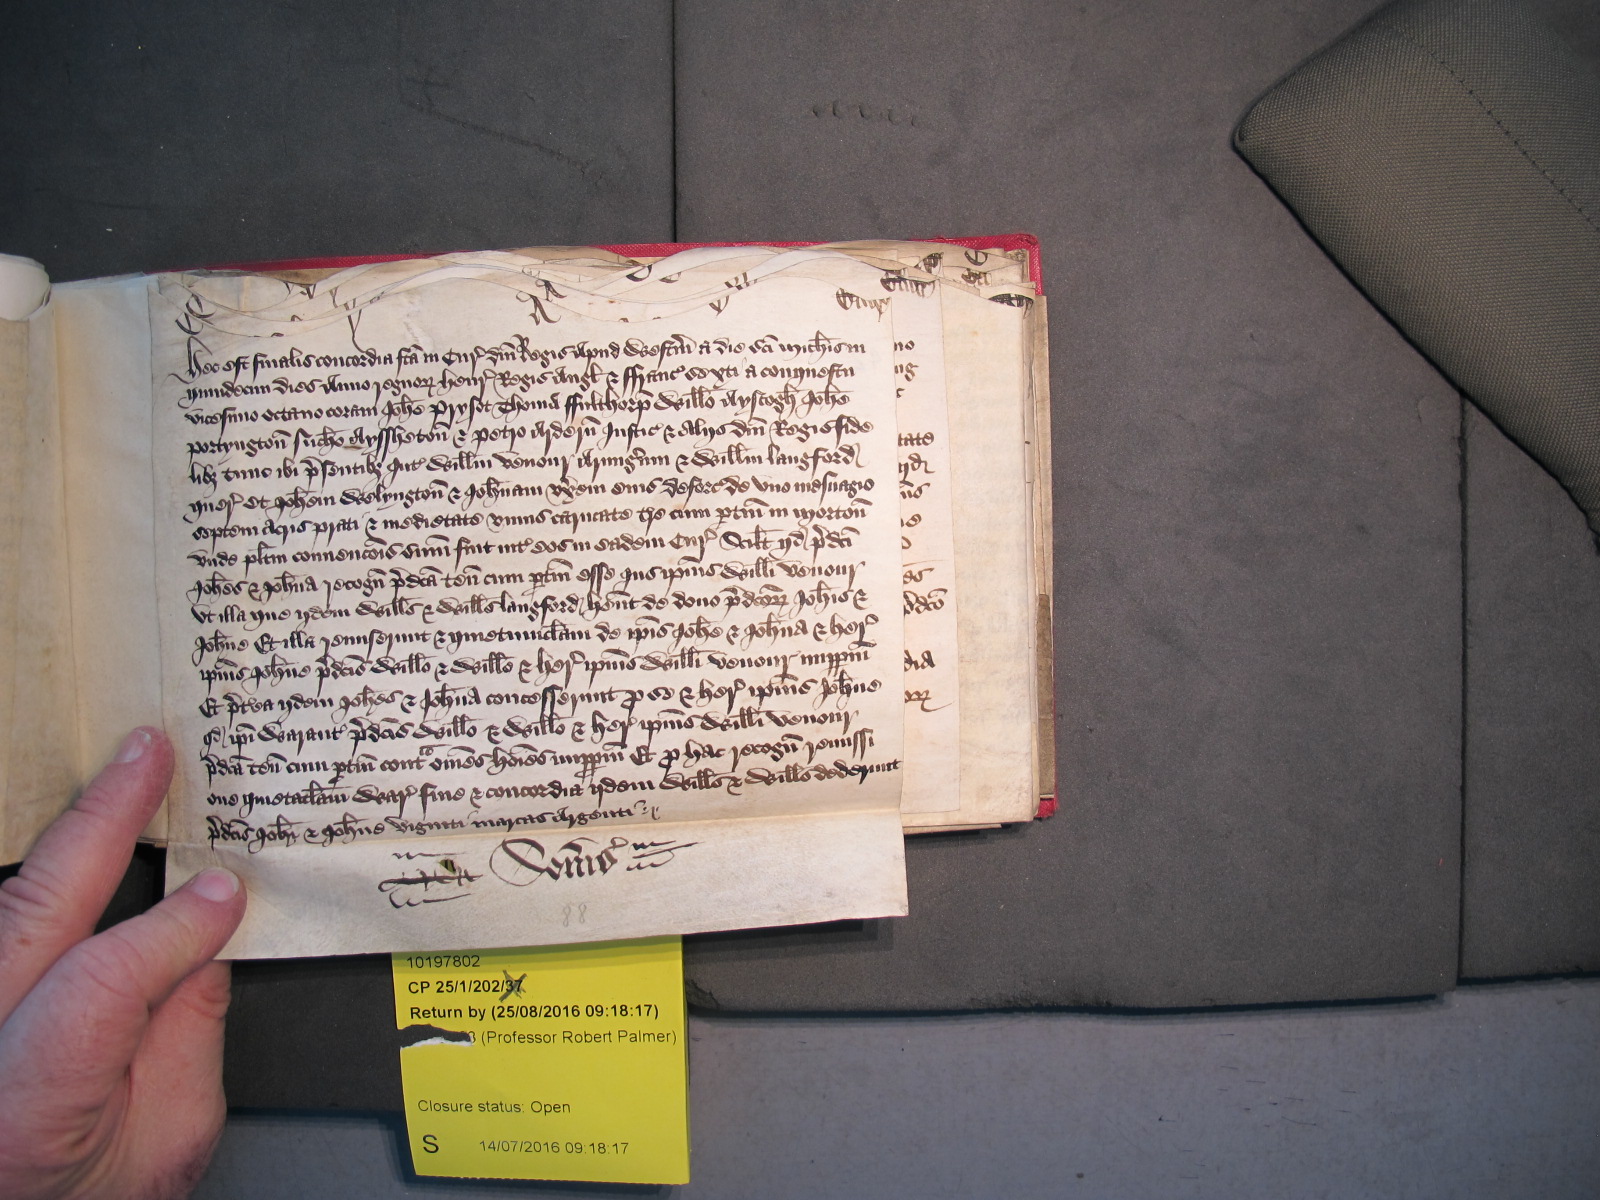 Hec est finalis concordia fc̃a in Cur̃ dñi Regis apud Westm̃ a die sc̃i Mich̃is in
quindecim dies Anno regnor̃ Henr̃ Regis Angl̃ & ffranc̃ sexti a conquestu
vicesimo octavo coram Joh̃e Prysot Thoma ffulthorp̃ Will̃o Ayscogh̃ Joh̃e
Portyngton̄ Nich̃o Ayssheton̄ & Petro Ardern̄ Justic̃ & aliis dñi Regis fide
lib3 tunc ibi p̃sentib3 Int̃ Will̃m Venour Armig̃um & Will̃m Langford
quer̃ Et Joh̃em Welyngton̄ & Joh̃nam vx̃em eius deforc̃ de vno mesuagio
septem acris prati & medietate vnius carucate t̃re cum p̃tin̄ in Morton̄
vnde pl̃itm convenc̃ois sum̄ fuit int̃ eos in eadem Cur̃ Scil̃t qđ p̃dc̃i
Joh̃es & Joh̃na recogn̄ p̃dc̃a ten̄ cum p̃tin̄ esse jus ip̃ius Will̃i Venour
vt illa que ijdem Will̃s & Will̃s Langford h̃ent de dono p̃dc̃or̃ Joh̃is &
Joh̃ne Et illa remiserunt & quietumclam̄ de ip̃is Joh̃e & Joh̃na & her̃
ip̃ius Joh̃ne p̃dc̃is Will̃o & Will̃o & her̃ ip̃ius Will̃i Venour imp̃p̃m
Et p̃t̃ea ijdem Joh̃es & Joh̃na concesserunt p̃ se & her̃ ip̃ius Joh̃ne
qđ ip̃i Warant̃ p̃dc̃is Will̃o & Will̃o & her̃ ip̃ius Will̃i Venour
p̃dc̃a ten̄ cum p̃tin̄ cont̃ om̃es ho̅ies imp̃p̃m Et p̃ hac recogn̄ remissi
one quietaclam̄ War̃ fine & concordia ijdem Will̃s & Will̃s dederunt
p̃dc̃is Joh̃i & Joh̃ne viginti marcas argenti
88
10197802
CP 25/1/202/37
Return by (25/08/2016 09:18:17)
3 (Professor Robert Palmer)
Closure status: Open
S 14/07/2016 09:18:17